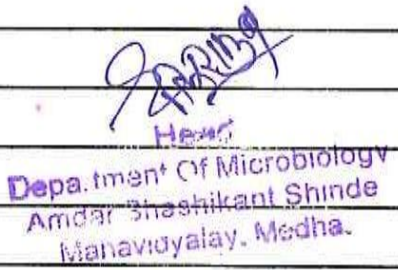 Head
Department Of Microbiology
Amdar Shashikant Shinde
Mahavidyalay, Medha.